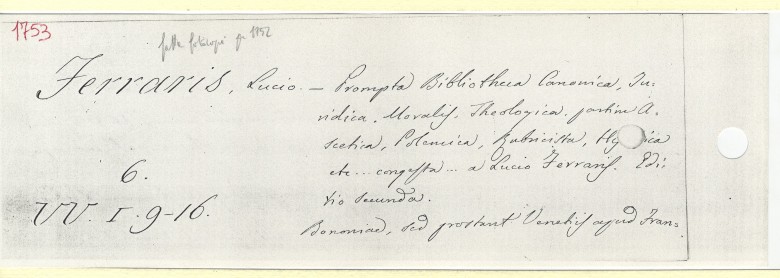 1753
fatta fotocopia
Ferraris, Lucio. — Prompta Bibliotheca Canonica, Iu-
ridica, Moralis, Theologica. partim A-
scetica, Polemica, Rubricista,
etc... congesta... a Lucio Ferraris. Edi-
tio secunda.
6.
VV. I. 9-16.
Bononiae, sed prostant Venetiis apud Fran-